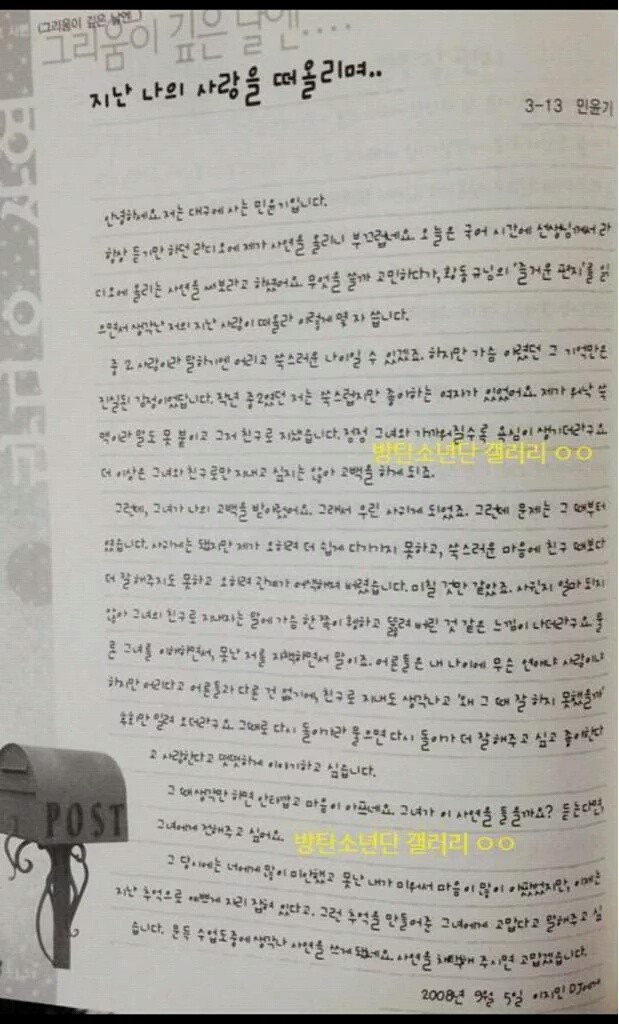 (그리움이 깊은 날엔...)
그리움이 깊은 날엔....
지난 나의 사랑을 떠올리며..
3-13 민윤기
안녕하세요. 저는 대구에 사는 민윤기입니다.
항상 듣기만 하던 라디오에 제가 사연을 올리니 부끄럽네요. 오늘은 국어 시간에 선생님께서 라
디오에 올리는 사연을 써보라고 하셨어요. 무엇을 쓸까 고민하다가, 황동규님의 '즐거운 편지'를 읽
으면서 생각난 저의 지난 사랑이 떠올라 이렇게 몇 자 씁니다.
중2 사랑이라 말하기엔 어리고 쑥스러운 나이일 수 있겠죠. 하지만 가슴 아렸던 그 기억만은
진실된 감정이었답니다. 작년 중2였던 저는 쑥스럽지만 좋아하는 여자가 있었어요. 제가 워낙 쑥
맥이라 말도 못 붙이고 그저 친구로 지냈습니다. 점점 그녀와 가까워질수록 욕심이 생기더라구요
방탄소년단 갤러리 ㅇㅇ
더 이상은 그녀와 친구로만 지내고 싶지는 않아 고백을 하게 되죠.
그런데, 그녀가 나의 고백을 받아줬어요. 그래서 우린 사귀게 되었죠. 그런데 문제는 그 때부터
였습니다. 사귀게는 됐지만 제가 오히려 더 쉽게 다가가지 못하고, 쑥스러운 마음에 친구 때보다
더 잘해주지도 못하고 오히려 관계가 어색해져 버렸습니다. 미칠 것만 같았죠. 사귄지 얼마 되지
않아 그녀의 친구로 지내자는 말에 가슴 한 쪽이 휑하고 뚫려 버린 것 같은 느낌이 나더라구요. 물
론 그녀를 이해하면서, 못난 저를 자책하면서 말이죠. 어른들은 내 나이에 무슨 연애냐 사랑이냐
하지만 어리다고 어른들과 다른 건 없기에, 친구로 지내도 생각나고 '왜 그 때 잘 하지 못했을까'
후회만 밀려 오더라구요. 그때로 다시 돌아가라 물으면 다시 돌아가 더 잘해주고 싶고 좋아한다
고 사랑한다고 떳떳하게 이야기하고 싶습니다.
그 때 생각만 하면 안타깝고 마음이 아프네요. 그녀가 이 사연을 들을까요? 듣는다면,
그녀에게 전해주고 싶어요.
방탄소년단 갤러리 ㅇㅇ
그 당시에는 너에게 많이 미안했고 못난 내가 미워서 마음이 많이 아팠었지만, 이제는
지난 추억으로 예쁘게 자리 잡혀 있다고. 그런 추억을 만들어준 그녀에게 고맙다고 말해주고 싶
습니다. 문득 수업도중에 생각나 사연을 쓰게 됐네요. 사연을 채택해 주시면 고맙겠습니다.
2008년 9월 5일 이지민 DJ에게
POST